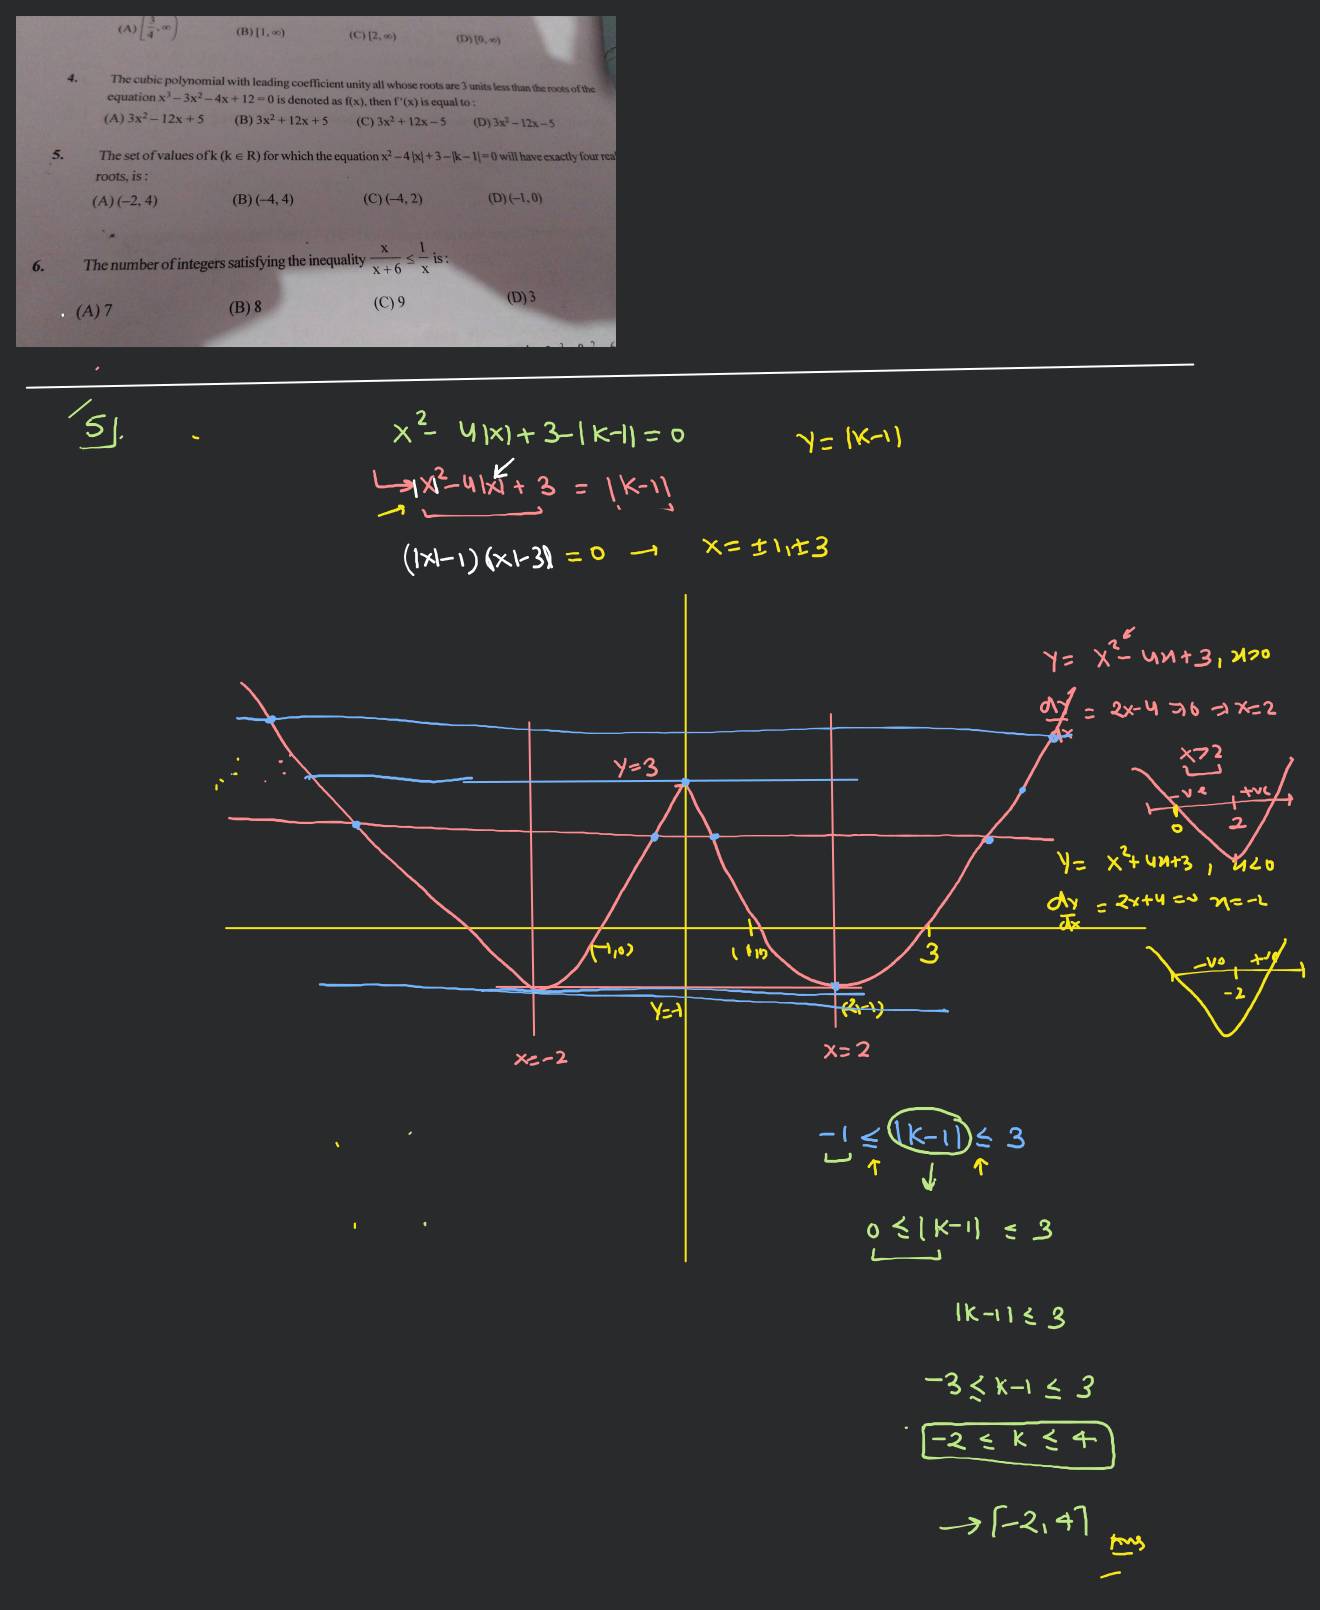 (A) [3/4, ∞) (B) [1, ∞) (C) [2, ∞) (D) [0, ∞)
4. The cubic polynomial with leading coefficient unity all whose roots are 3 units less than the roots of the
equation x³ – 3x² – 4x + 12 = 0 is denoted as f(x), then f'(x) is equal to :
(A) 3x² – 12x + 5 (B) 3x² + 12x + 5 (C) 3x² + 12x – 5 (D) 3x² – 12x – 5
5. The set of values of k (k ∈ R) for which the equation x² – 4|x| + 3 – |k – 1| = 0 will have exactly four real
roots, is :
(A) (–2, 4) (B) (–4, 4) (C) (–4, 2) (D) (–1, 0)
6. The number of integers satisfying the inequality x/(x + 6) ≤ 1/x is :
(A) 7 (B) 8 (C) 9 (D) 3
5).
x² - 4|x| + 3 - |k-1| = 0
y = |k-1|
|x|² - 4|x| + 3 = |k-1|
(|x|-1)(|x|-3) = 0 → x = ±1, ±3
y = x² - 4x + 3, x>0
dy/dx = 2x-4 ⇒0 ⇒ x=2
x>2
-ve +ve
0 2
y = x² + 4x + 3, x<0
dy/dx = 2x+4 = 0 x = -2
-ve +ve
-2
y=3
(-1,0) (1,0) 3
y=-1 (2,-1)
x=-2 x=2
-1 ≤ |k-1| ≤ 3
0 ≤ |k-1| ≤ 3
|k-1| ≤ 3
-3 ≤ k-1 ≤ 3
-2 ≤ k ≤ 4
→ [-2, 4] Ans